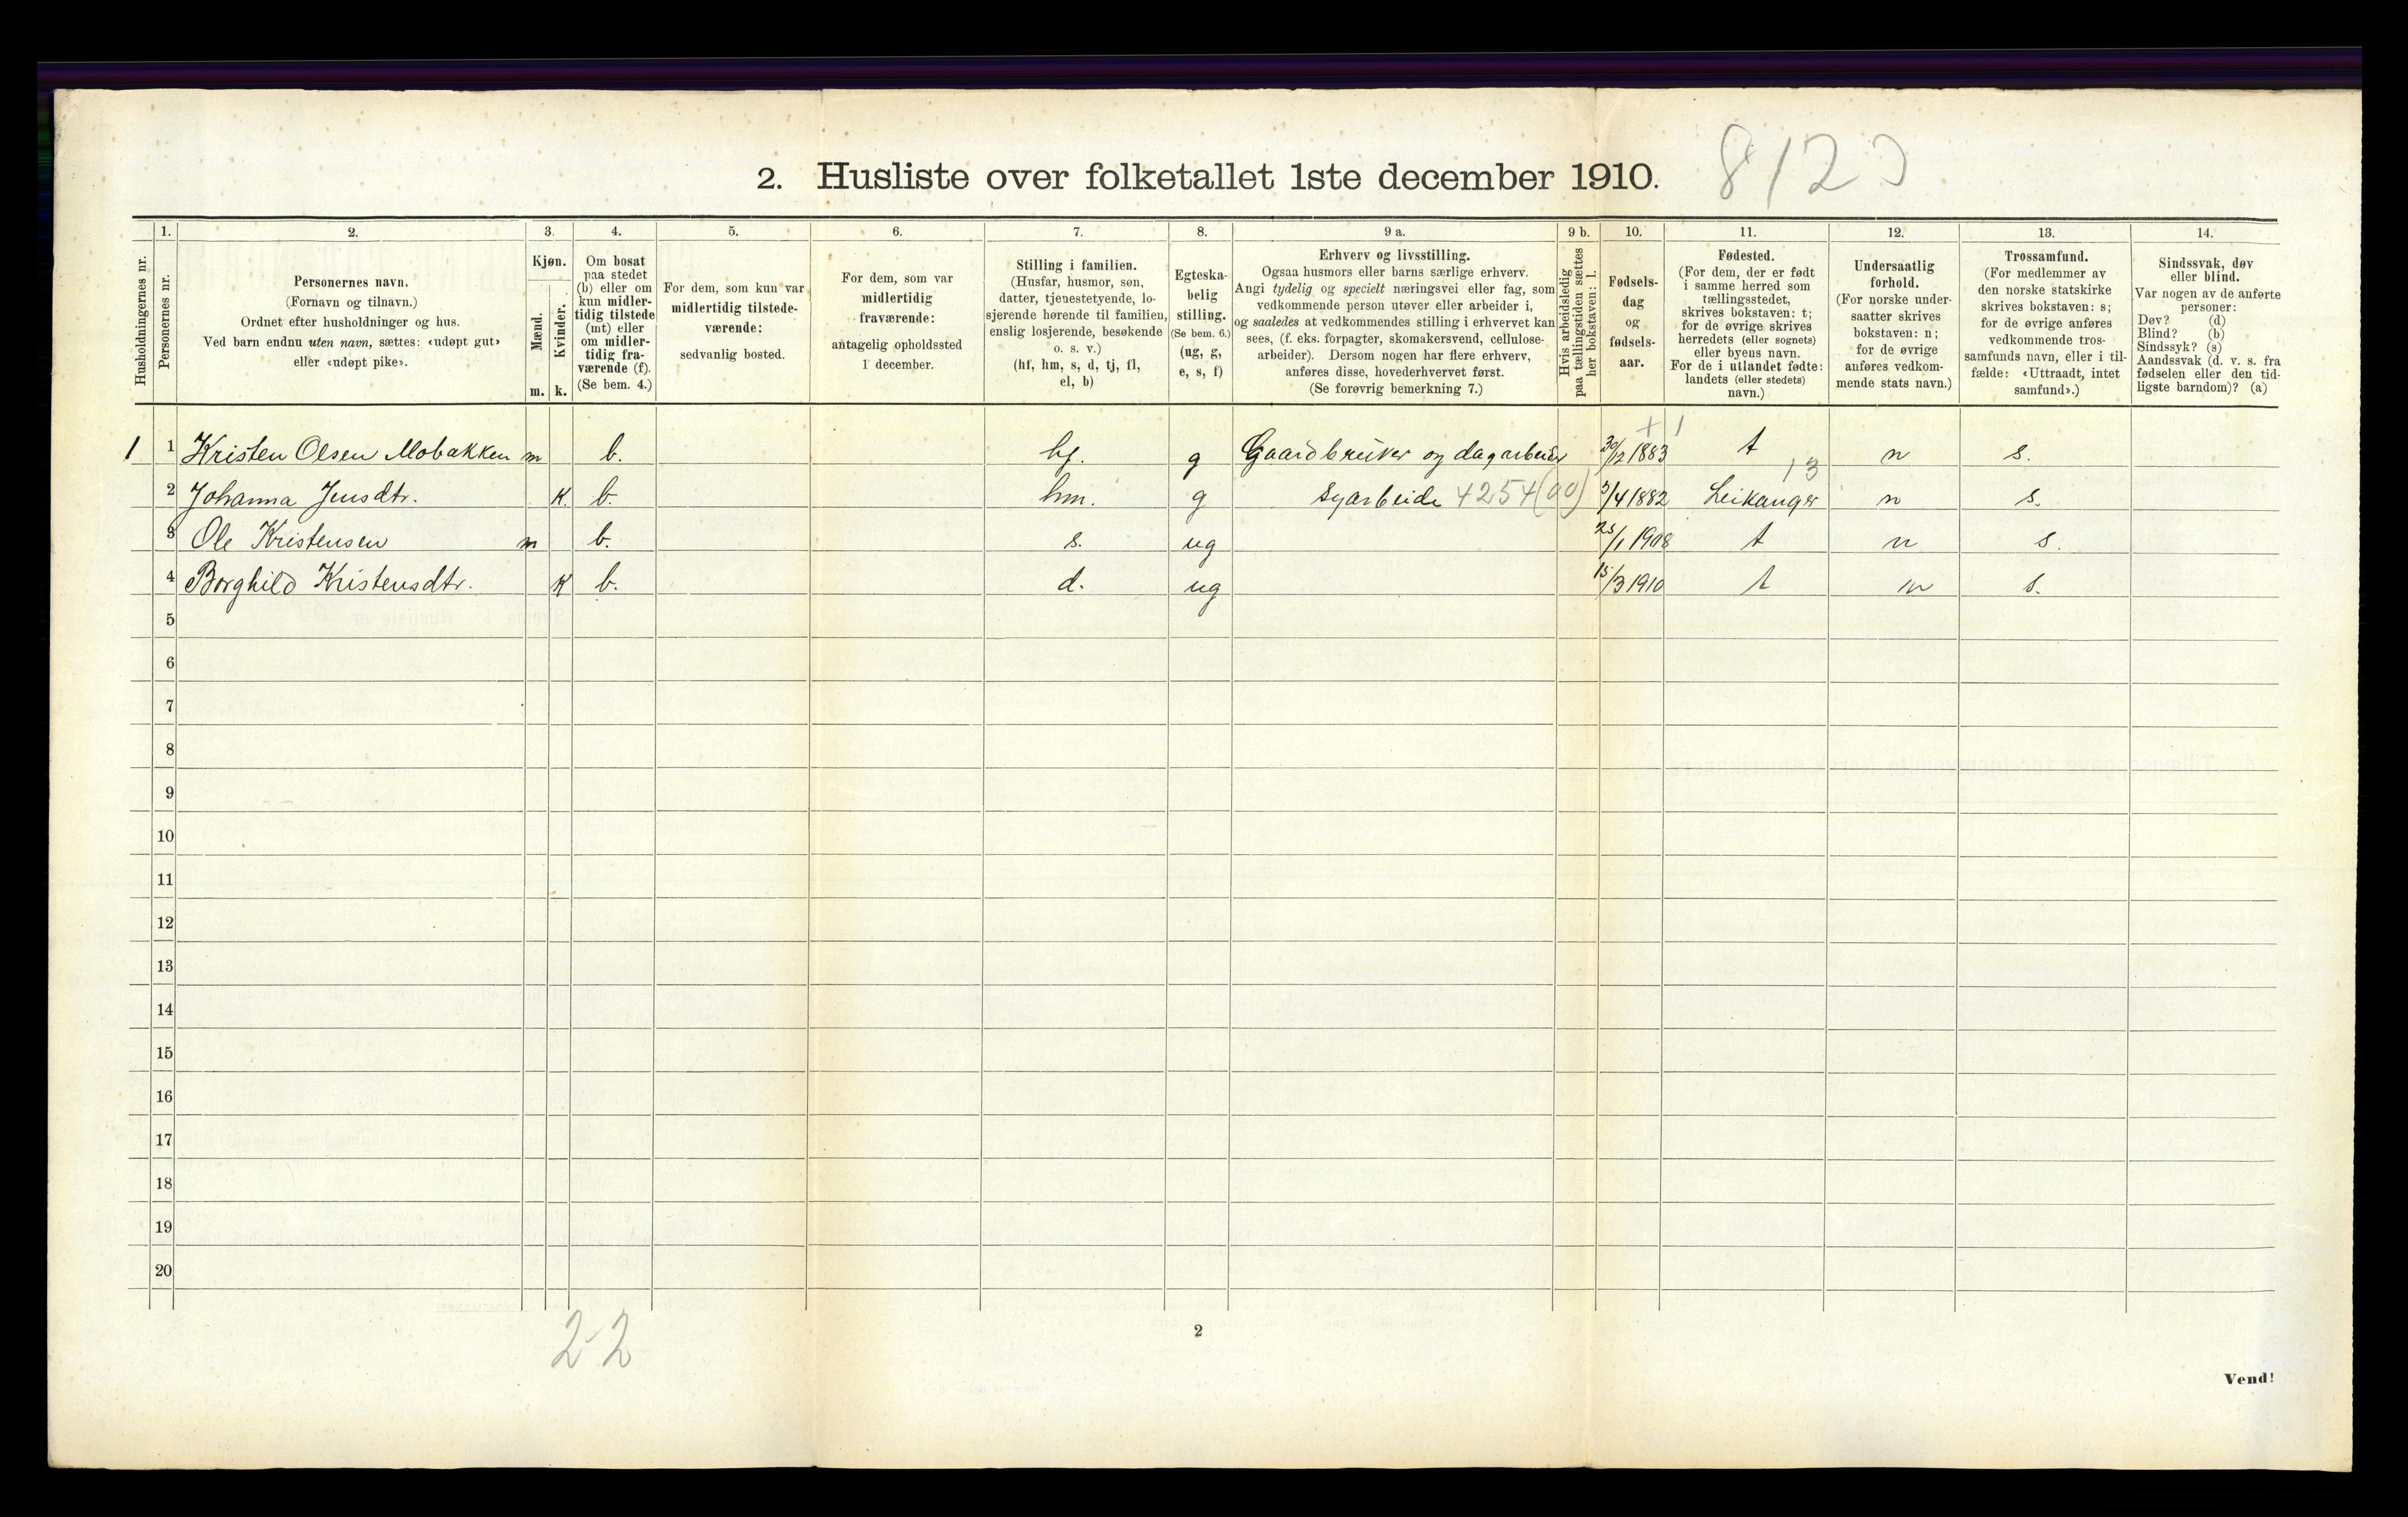 2. Husliste over folketallet 1ste december 1910. 812
Husholdningernes nr.
1. Personernes nr.
2. Personernes navn.
(Fornavn og tilnavn.)
Ordnet efter husholdninger og hus.
Ved barn endnu uten navn, sættes: «udøpt gut»
eller «udøpt pike».
3. Kjøn.
Mænd. m.
Kvinder. k.
4. Om bosat
paa stedet
(b) eller om
kun midler-
tidig tilstede
(mt) eller
om midler-
tidig fra-
værende (f).
(Se bem. 4.)
5. For dem, som kun var
midlertidig tilstede-
værende:
sedvanlig bosted.
6. For dem, som var
midlertidig
fraværende:
antagelig opholdssted
1 december.
7. Stilling i familien.
(Husfar, husmor, søn,
datter, tjenestetyende, lo-
sjerende hørende til familien,
enslig losjerende, besøkende
o. s. v.)
(hf, hm, s, d, tj, fl,
el, b)
8. Egteska-
belig
stilling.
(Se bem. 6.)
(ug, g,
e, s, f)
9 a. Erhverv og livsstilling.
Ogsaa husmors eller barns særlige erhverv.
Angi tydelig og specielt næringsvei eller fag, som
vedkommende person utøver eller arbeider i,
og saaledes at vedkommendes stilling i erhvervet kan
sees, (f. eks. forpagter, skomakersvend, cellulose-
arbeider). Dersom nogen har flere erhverv,
anføres disse, hovederhvervet først.
(Se forøvrig bemerkning 7.)
9 b. Hvis arbeidsledig
paa tællingstiden sættes
her bokstaven: l.
10. Fødsels-
dag
og
fødsels-
aar.
11. Fødested.
(For dem, der er født
i samme herred som
tællingsstedet,
skrives bokstaven: t;
for de øvrige skrives
herredets (eller sognets)
eller byens navn.
For de i utlandet fødte:
landets (eller stedets)
navn.)
12. Undersaatlig
forhold.
(For norske under-
saatter skrives
bokstaven: n;
for de øvrige
anføres vedkom-
mende stats navn.)
13. Trossamfund.
(For medlemmer av
den norske statskirke
skrives bokstaven: s;
for de øvrige anføres
vedkommende tros-
samfunds navn, eller i til-
fælde: «Uttraadt, intet
samfund».)
14. Sindssvak, døv
eller blind.
Var nogen av de anførte
personer:
Døv? (d)
Blind? (b)
Sindssyk? (s)
Aandssvak (d. v. s. fra
fødselen eller den tid-
ligste barndom)? (a)
1 1 Kristen Olsen Mobakken m b. hf. g Gaardbruker og dagarbeider 30/12 1883 t n s.
2 Johanna Jensdtr. K. b. hm. g Syarbeide 4254(00) 3/4 1882 Leikanger 13 n s.
3 Ole Kristensen m b. s. ug 25/1 1908 t n s.
4 Borghild Kristensdtr. K b. d. ug 15/3 1910 t n s.
5
6
7
8
9
10
11
12
13
14
15
16
17
18
19
20
22
2
Vend!